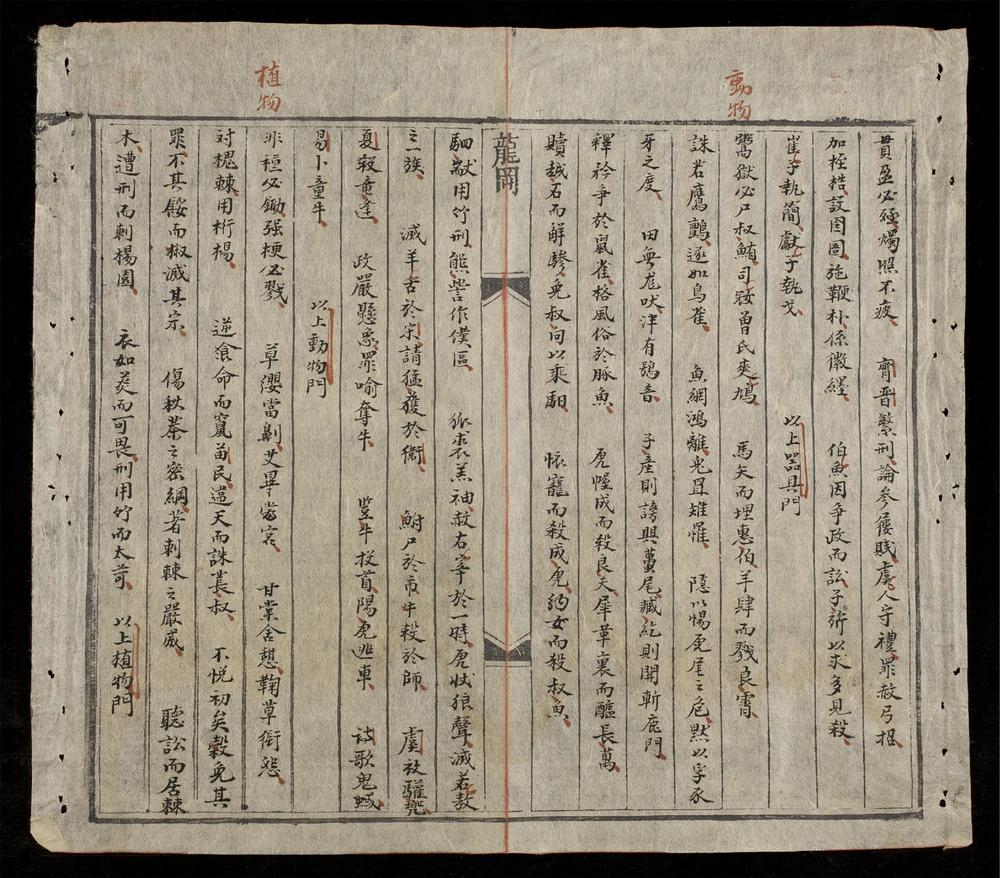 動物
貫盈必殛燭照不疲 齊晋繁刑論參屨賤虞人守禮罪赦弓招
加桎梏設囹圄施鞭朴係徽纆 伯魚因爭政而訟子斨以求多見殺
崔子執簡獻子執戈 以上器具門
鬻獄必尸叔鮪司寇曾氏爽鳩 馬矢而埋惠伯羊肆而戮良霄
誅若鷹鸇逐如鳥雀 魚網鴻離兔罝雉罹 隱以惕虎尾之危默以孚豕
牙之度 田無尨吠泮有鴞音 子產則謗興蠆尾臧紇則開斬鹿門
釋衿爭於鼠雀格風俗於豚魚 虎幄成而殺良夫犀革裹而醢長萬
贖越石而解驂免叔向以乘馹 恡寵而殺成虎納女而殺叔魚
龍岡
駟歂用竹刑熊訾作僕區 狐裘羔袖赦右宰於一時虎狀狼聲滅若敖
之族 滅羊舌於宗請猛獲於衛 鮒尸於市牛殺於師 虞放驩兜
夏殺龍逢 政嚴懸象罪喻奪牛 豎牛投首陽虎逃車 詩歌鬼蜮
易卜童牛 以上動物門
植物
非種必鋤强梗必戮 草纓當劓艾畢當宮 甘棠舍憩鞫草銜怨
對槐棘用桁楊 逆飡命而竄苗民違天而誅萇叔 不悅初矣穀免其
罪不其餒而椒滅其宗 傷秋荼之密網著刺棘之嚴威 聽訟而居棘
木遭刑而刺楊園 衣如菼而可畏刑用竹而太苛 以上植物門